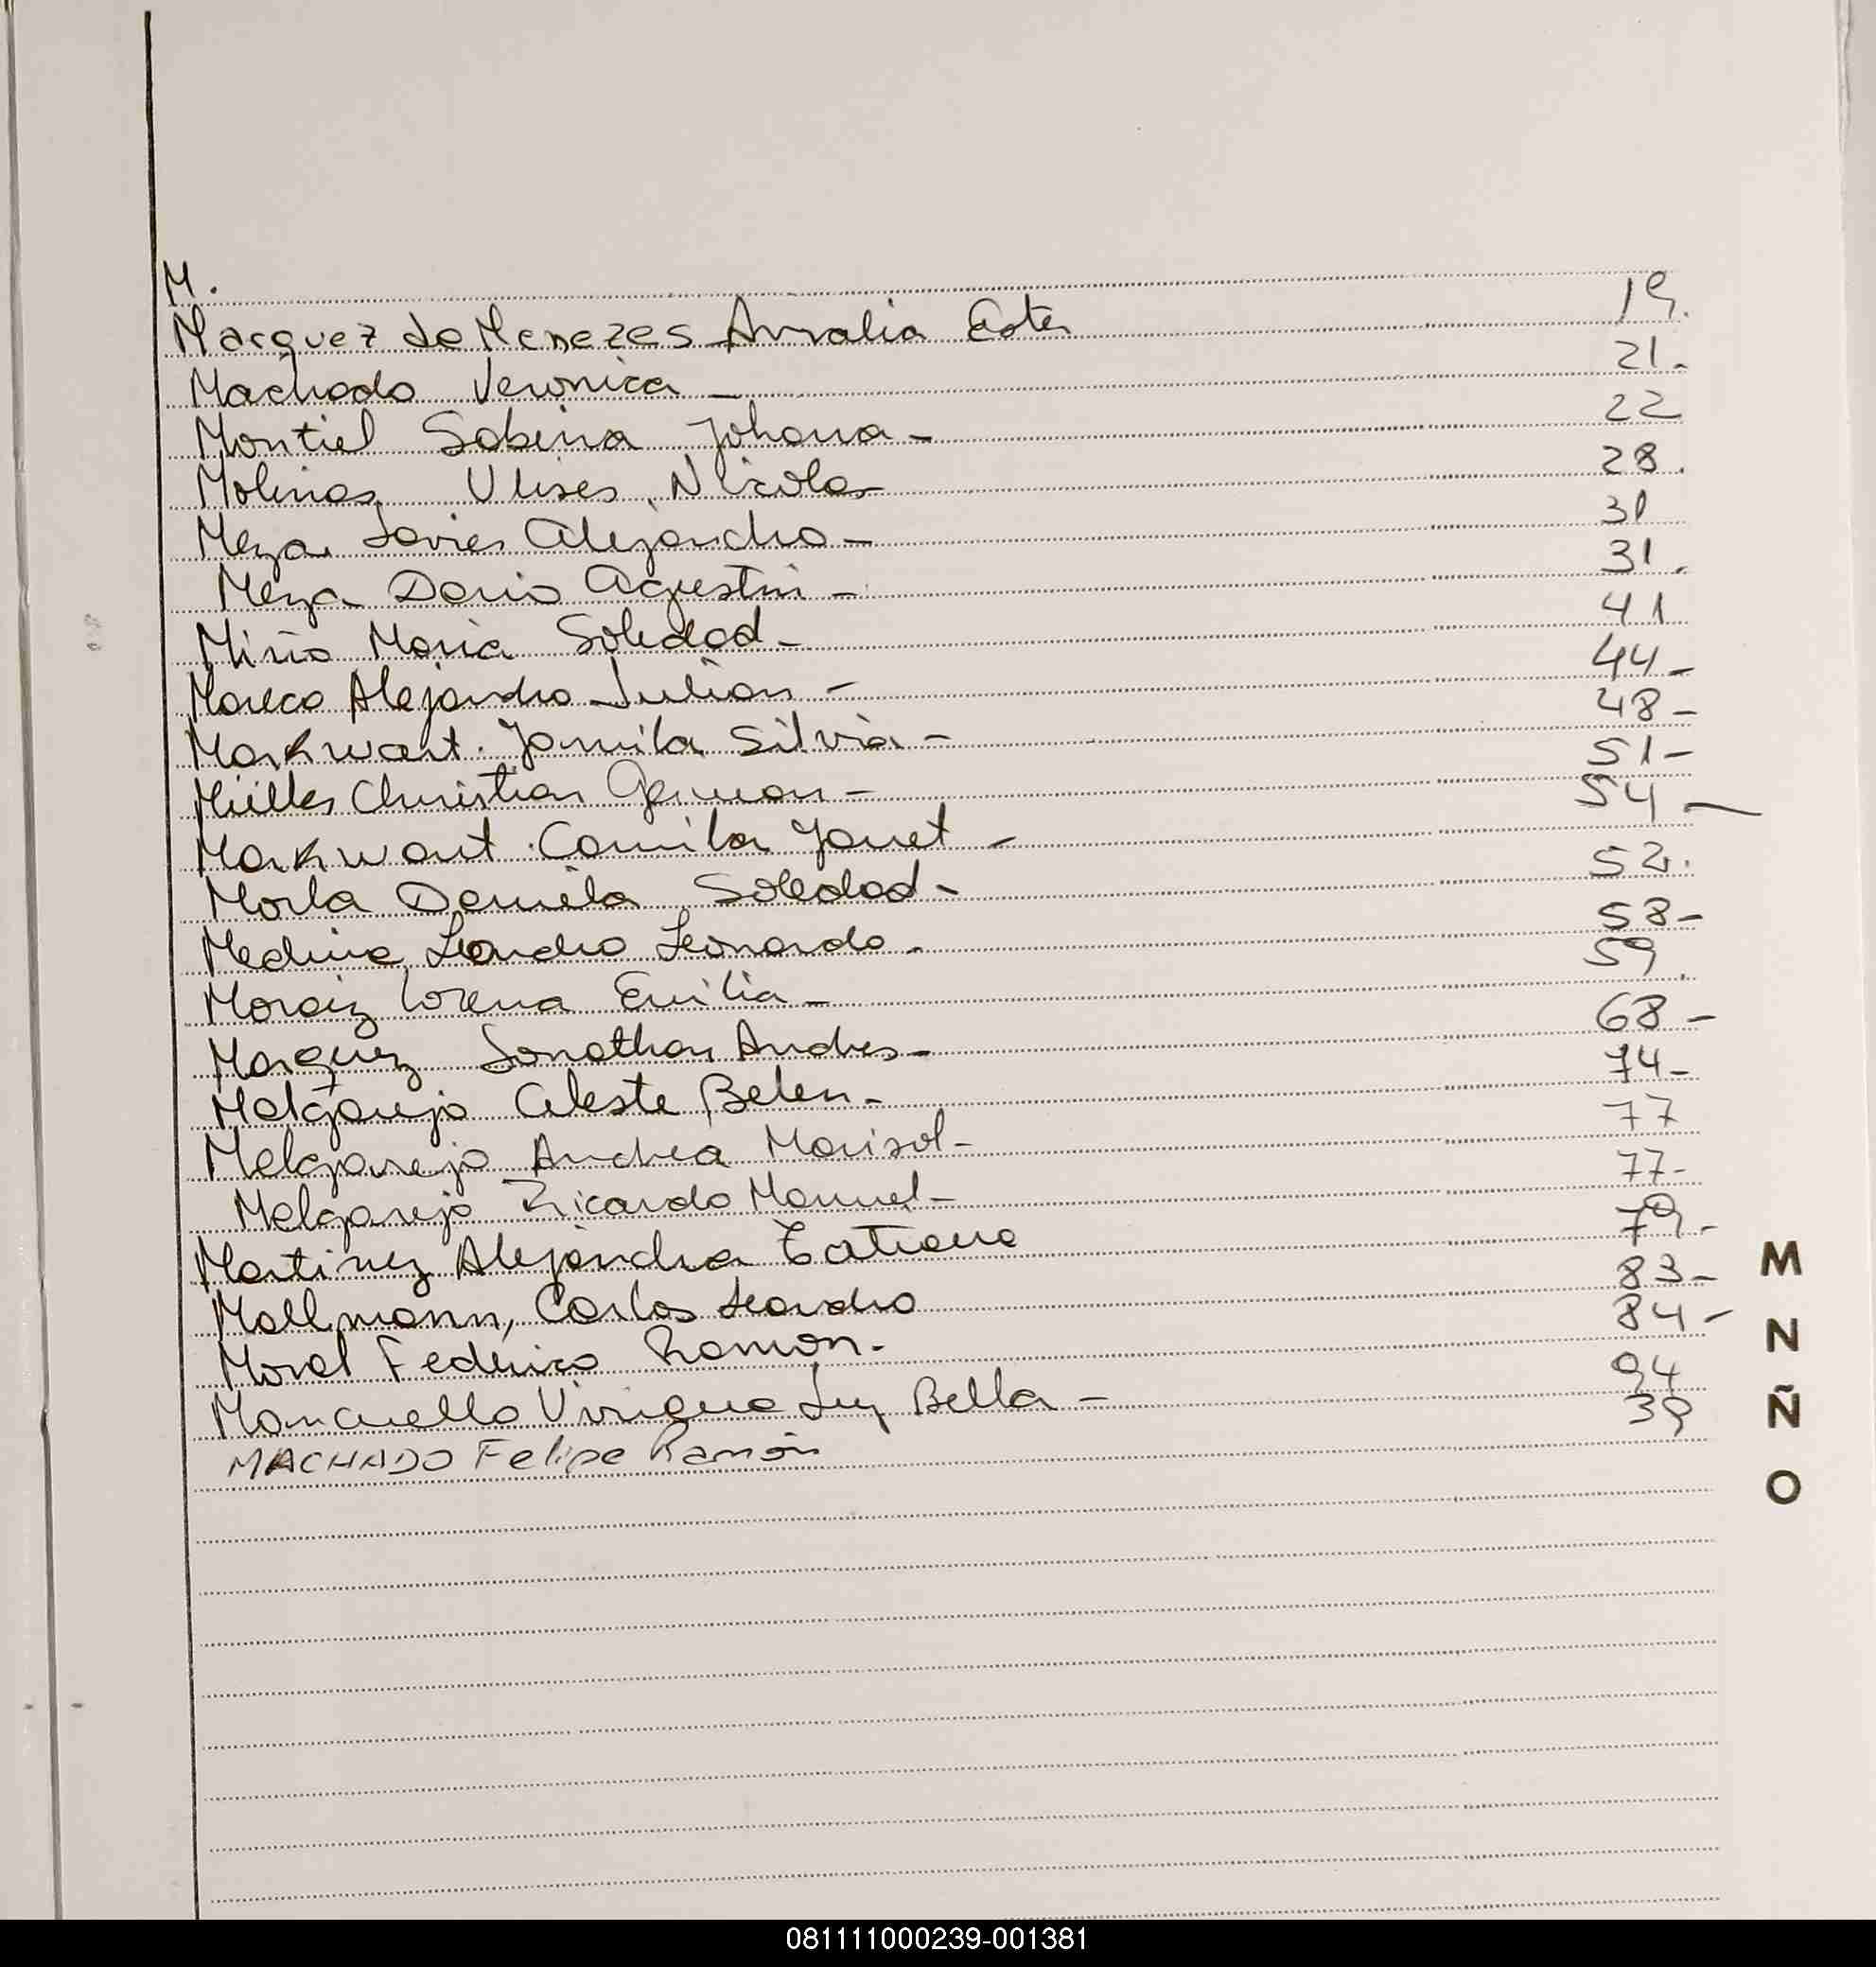 M.
Marquez de Menezes Amalia Ester 19.
Machado Veronica 21.-
Montiel Sabina Johana - 22
Molinas Ulises Nicolas 28.
Meza Javier Alejandro - 31
Meza Dario Agustin - 31.
Miño Maria Soledad - 41
Mareco Alejandro Julian - 44 -
Markwart Jamila Silvia - 48 -
Müller Christian German - 51 -
Markwart Camila Janet - 54 -
Morla Daniela Soledad - 52.
Medina Leandro Leonardo. 58 -
Moraiz Lorena Emilia - 59.
Marquez Jonathan Andres - 68 -
Melgarejo Celeste Belen - 74 -
Melgarejo Andrea Marisol - 77
Melgarejo Ricardo Manuel - 77 -
Martinez Alejandra Tatiana 79. -
Mallmann, Carlos Leandro 83 -
Moral Federico Ramon. 84 -
Mancuello Luz Bella - 94
MACHADO Felipe Ramón 39
M
N
Ñ
O
081111000239-001381